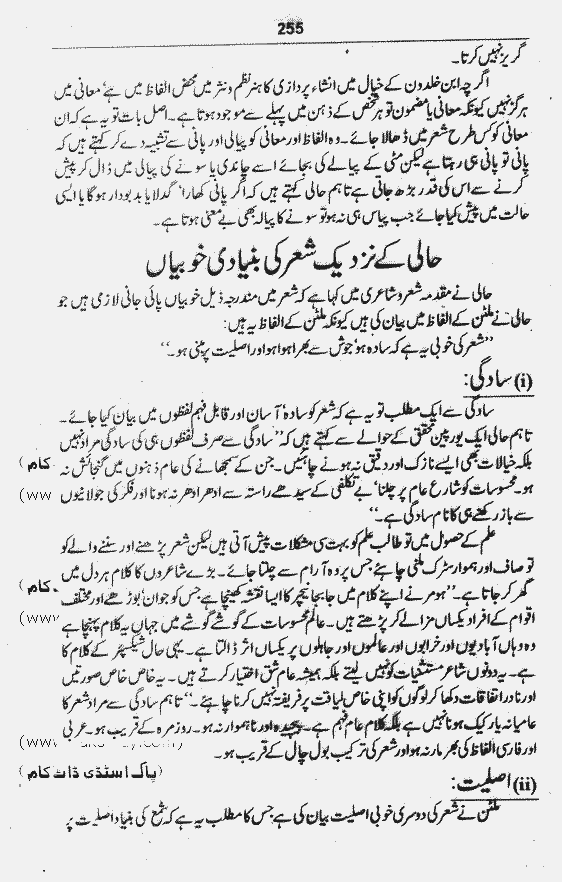 255
گریز نہیں کرتا۔
اگرچہ ابن خلدون کے خیال میں انشاء پردازی کا ہنر نظم و نثر میں محض الفاظ میں ہے‘ معانی میں
ہرگز نہیں کیونکہ معانی یا مضمون تو ہر شخص کے ذہن میں پہلے سے موجود ہوتا ہے۔ اصل بات تو یہ ہے کہ ان
معانی کو کس طرح شعر میں ڈھالا جائے۔ وہ الفاظ اور معانی کو پیالی اور پانی سے تشبیہ دے کر کہتے ہیں کہ
پانی تو پانی ہی رہتا ہے لیکن مٹی کے پیالے کی بجائے اسے چاندی یا سونے کی پیالی میں ڈال کر پیش
کرنے سے اس کی قدر بڑھ جاتی ہے تاہم حالی کہتے ہیں کہ اگر پانی کھارا‘ گدلا یا بدبودار ہو گا یا ایسی
حالت میں پیش کیا جائے جب پیاس ہی نہ ہو تو سونے کا پیالہ بھی بے معنی ہوتا ہے۔
حالی کے نزدیک شعر کی بنیادی خوبیاں
حالی نے مقدمہ شعر و شاعری میں کہا ہے کہ شعر میں مندرجہ ذیل خوبیاں پائی جانی لازمی ہیں جو
حالی نے ملٹن کے الفاظ میں بیان کی ہیں کیونکہ ملٹن کے الفاظ یہ ہیں:
’’شعر کی خوبی یہ ہے کہ سادہ ہو‘ جوش سے بھرا ہوا ہو اور اصلیت پر مبنی ہو۔‘‘
(i) سادگی:
سادگی سے ایک مطلب تو یہ ہے کہ شعر کو سادہ‘ آسان اور قابل فہم لفظوں میں بیان کیا جائے۔
تاہم حالی ایک یورپین محقق کے حوالے سے کہتے ہیں کہ ’’سادگی سے صرف لفظوں ہی کی سادگی مراد نہیں
بلکہ خیالات بھی ایسے نازک اور دقیق نہ ہونے چاہئیں۔ جن کے سمجھانے کی عام ذہنوں میں گنجائش نہ کام)
ہو۔ محسوسات کو شارع عام پر چلنا‘ بے تکلفی کے سیدھے راستہ سے ادھر ادھر نہ ہونا اور فکر کی جولانیوں (ww
سے باز رکھنے ہی کا نام سادگی ہے۔‘‘
علم کے حصول میں تو طالب علم کو بہت سی مشکلات پیش آتی ہیں لیکن شعر پڑھنے اور سننے والے کو
تو صاف اور ہموار سڑک ملنی چاہئے جس پر وہ آرام سے چلتا جائے۔ بڑے شاعروں کا کلام ہر دل میں
گھر کر جاتا ہے۔ ’’ہومر نے اپنے کلام میں جا بجا نیچر کا ایسا نقشہ کھینچا ہے جس کو جوان‘ بوڑھے اور مختلف کام)
اقوام کے افراد یکساں مزا لے کر پڑھتے ہیں۔ عالم محسوسات کے گوشے گوشے میں جہاں یہ کلام پہنچا ہے (www
وہ وہاں آبادیوں اور خرابوں اور عالموں اور جاہلوں پر یکساں اثر ڈالتا ہے۔ یہی حال شیکسپئر کے کلام کا
ہے۔ یہ دونوں شاعر مستثنیات کو نہیں لیتے بلکہ ہمیشہ عام شق اختیار کرتے ہیں۔ یہ خاص خاص صورتیں
اور نادر اتفاقات دکھا کر لوگوں کو اپنی خاص لیاقت پر فریفتہ نہیں کرنا چاہتے۔‘‘ تاہم سادگی سے مراد شعر کا
عامیانہ یا رکیک ہونا نہیں ہے بلکہ کلام عام فہم ہے۔ پیچیدہ اور ناہموار نہ ہو۔ روزمرہ کے قریب ہو۔ عربی
اور فارسی الفاظ کی بھرمار نہ ہو اور شعر کی ترکیب بول چال کے قریب ہو۔ (www
(پاک اسٹڈی ڈاٹ کام)
(ii) اصلیت:
ملٹن نے شعر کی دوسری خوبی اصلیت بیان کی ہے جس کا مطلب یہ ہے کہ کی بنیاد اصلیت پر